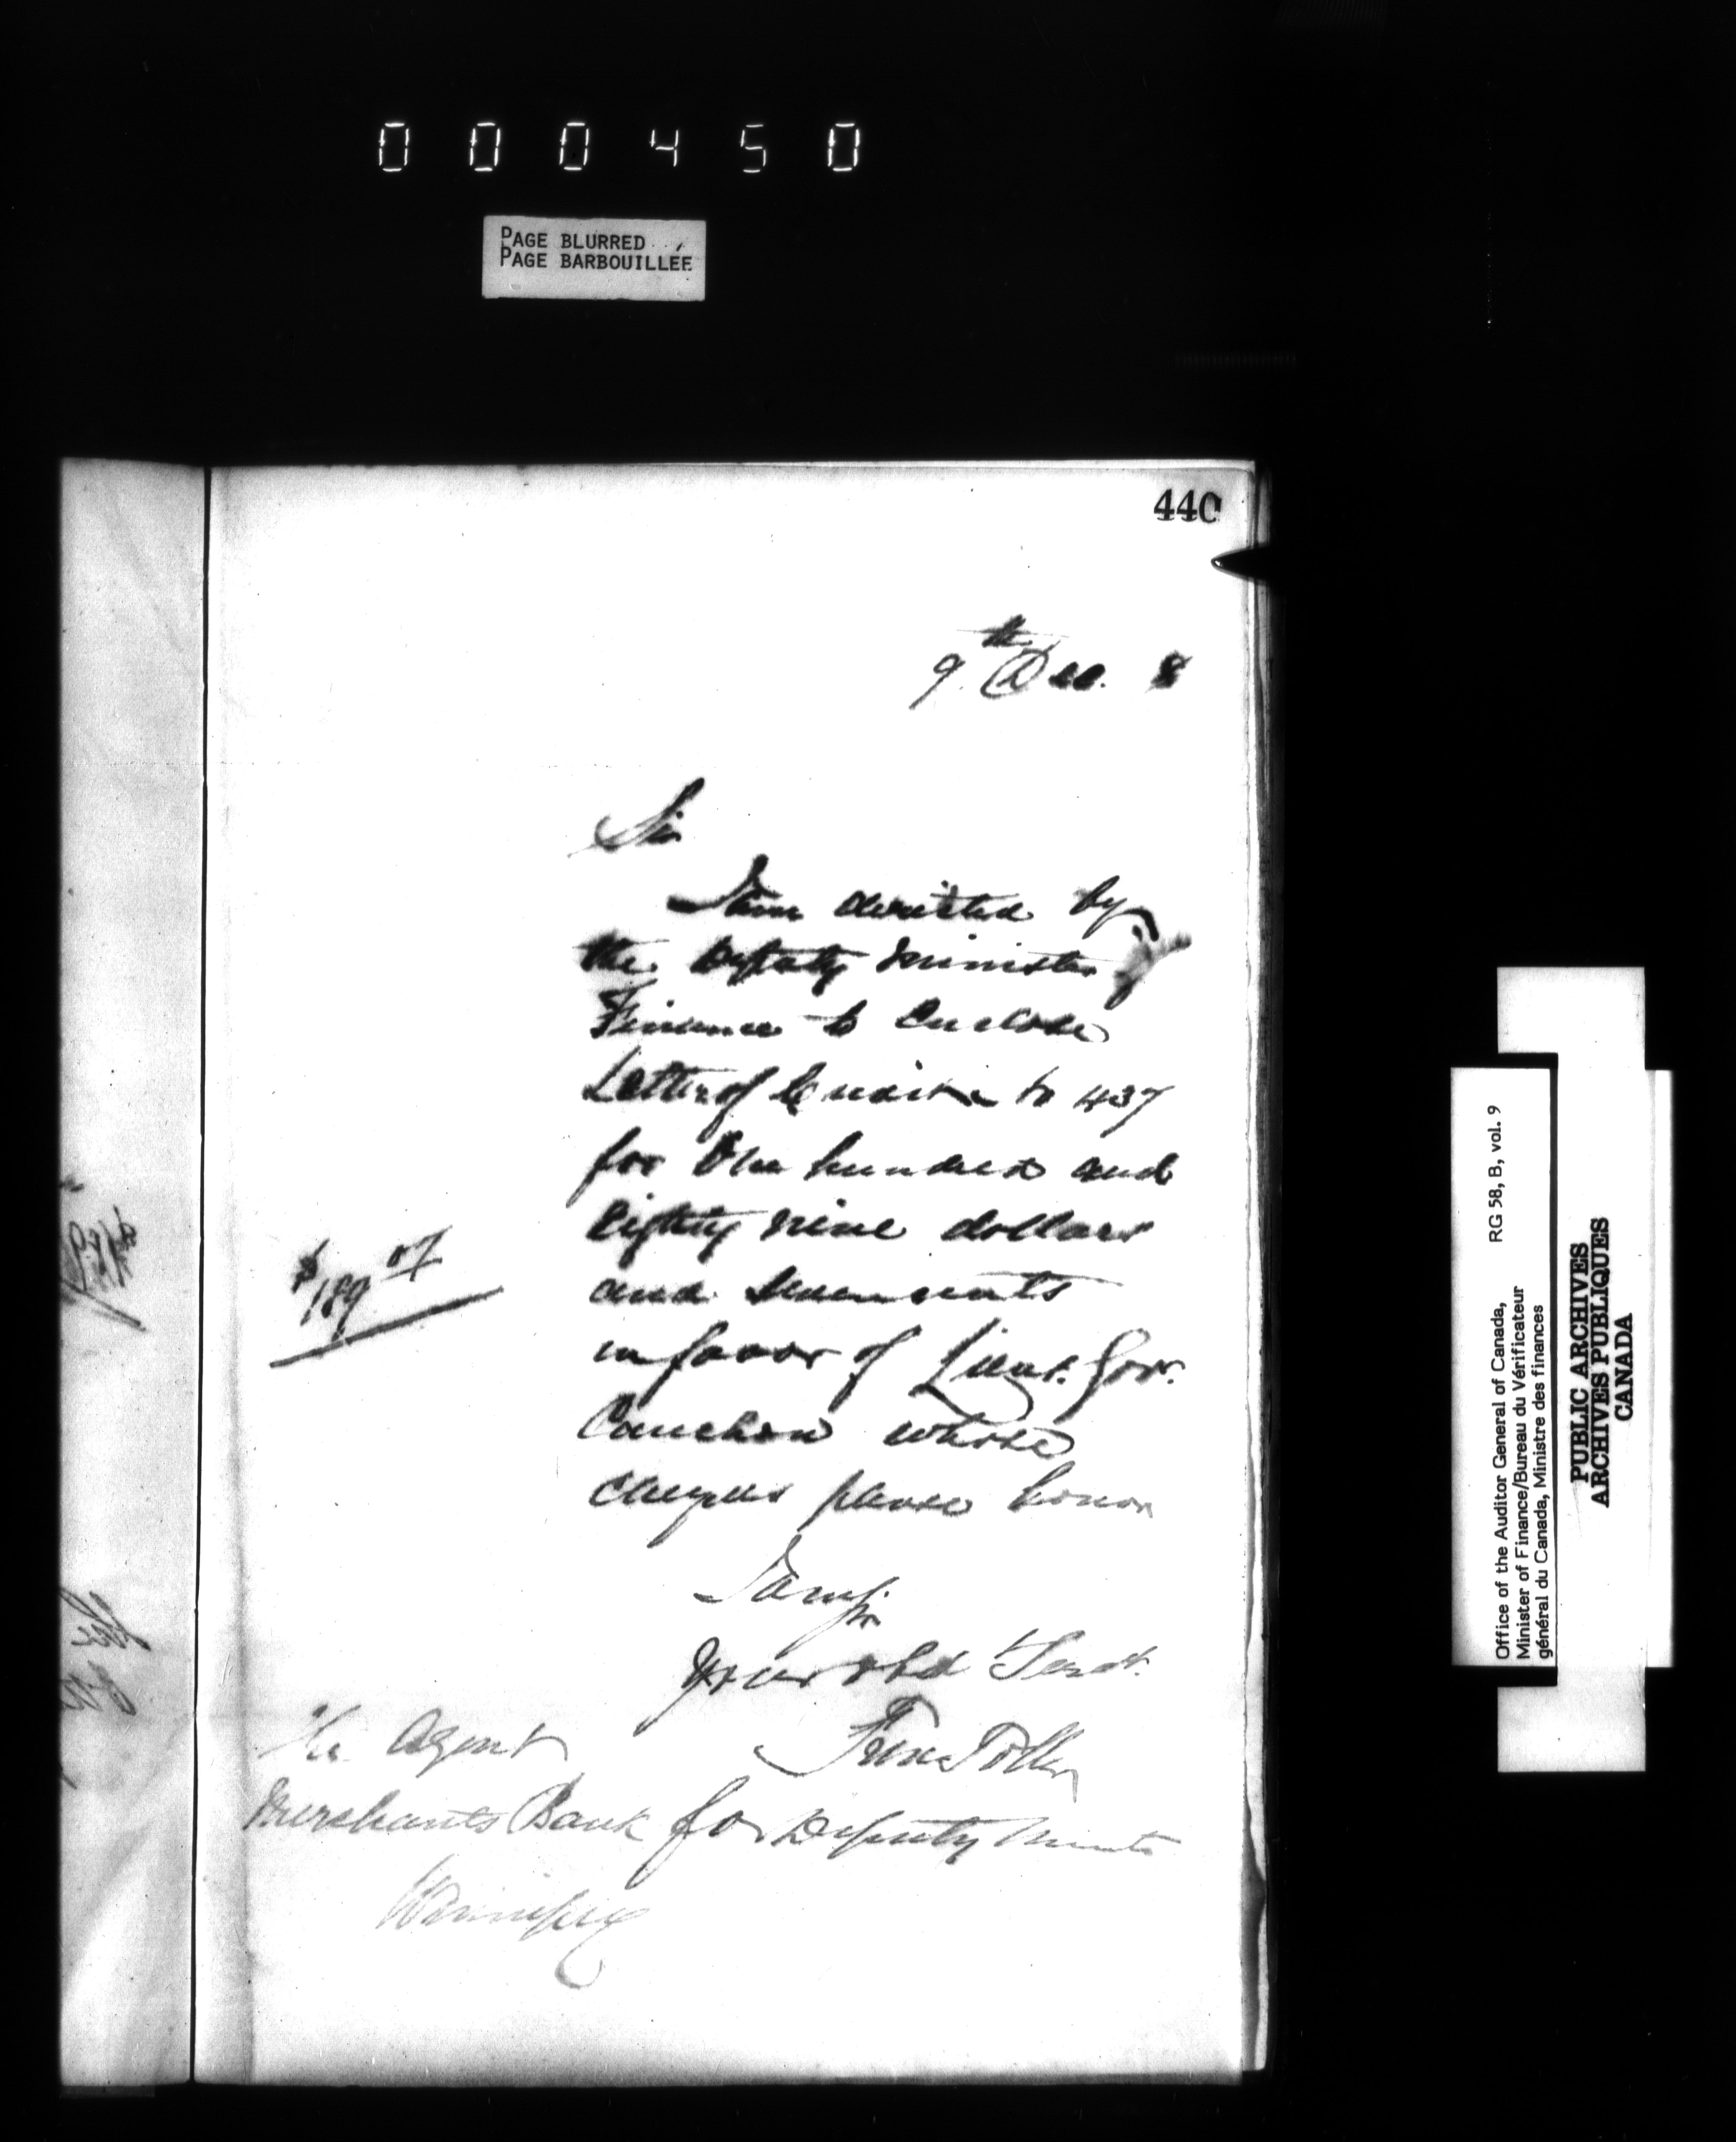 000450
PAGE BLURRED
PAGE BARBOUILLÉE
440
9th Dec. 8
Sir
I am directed by
the Deputy Minister of
Finance to enclose
Letter of Credit No 437
for One hundred and
Eighty nine dollars
and seven cents
$189 07
in favor of Lieut. Gov.
Cauchon whose
cheques please honor
I am Sir
Your obd Servt.
The Agent
Merchants Bank
Winnipeg
for Deputy
Office of the Auditor General of Canada, RG 58, B, vol. 9
Minister of Finance/Bureau du Vérificateur
général du Canada, Ministre des finances
PUBLIC ARCHIVES
ARCHIVES PUBLIQUES
CANADA